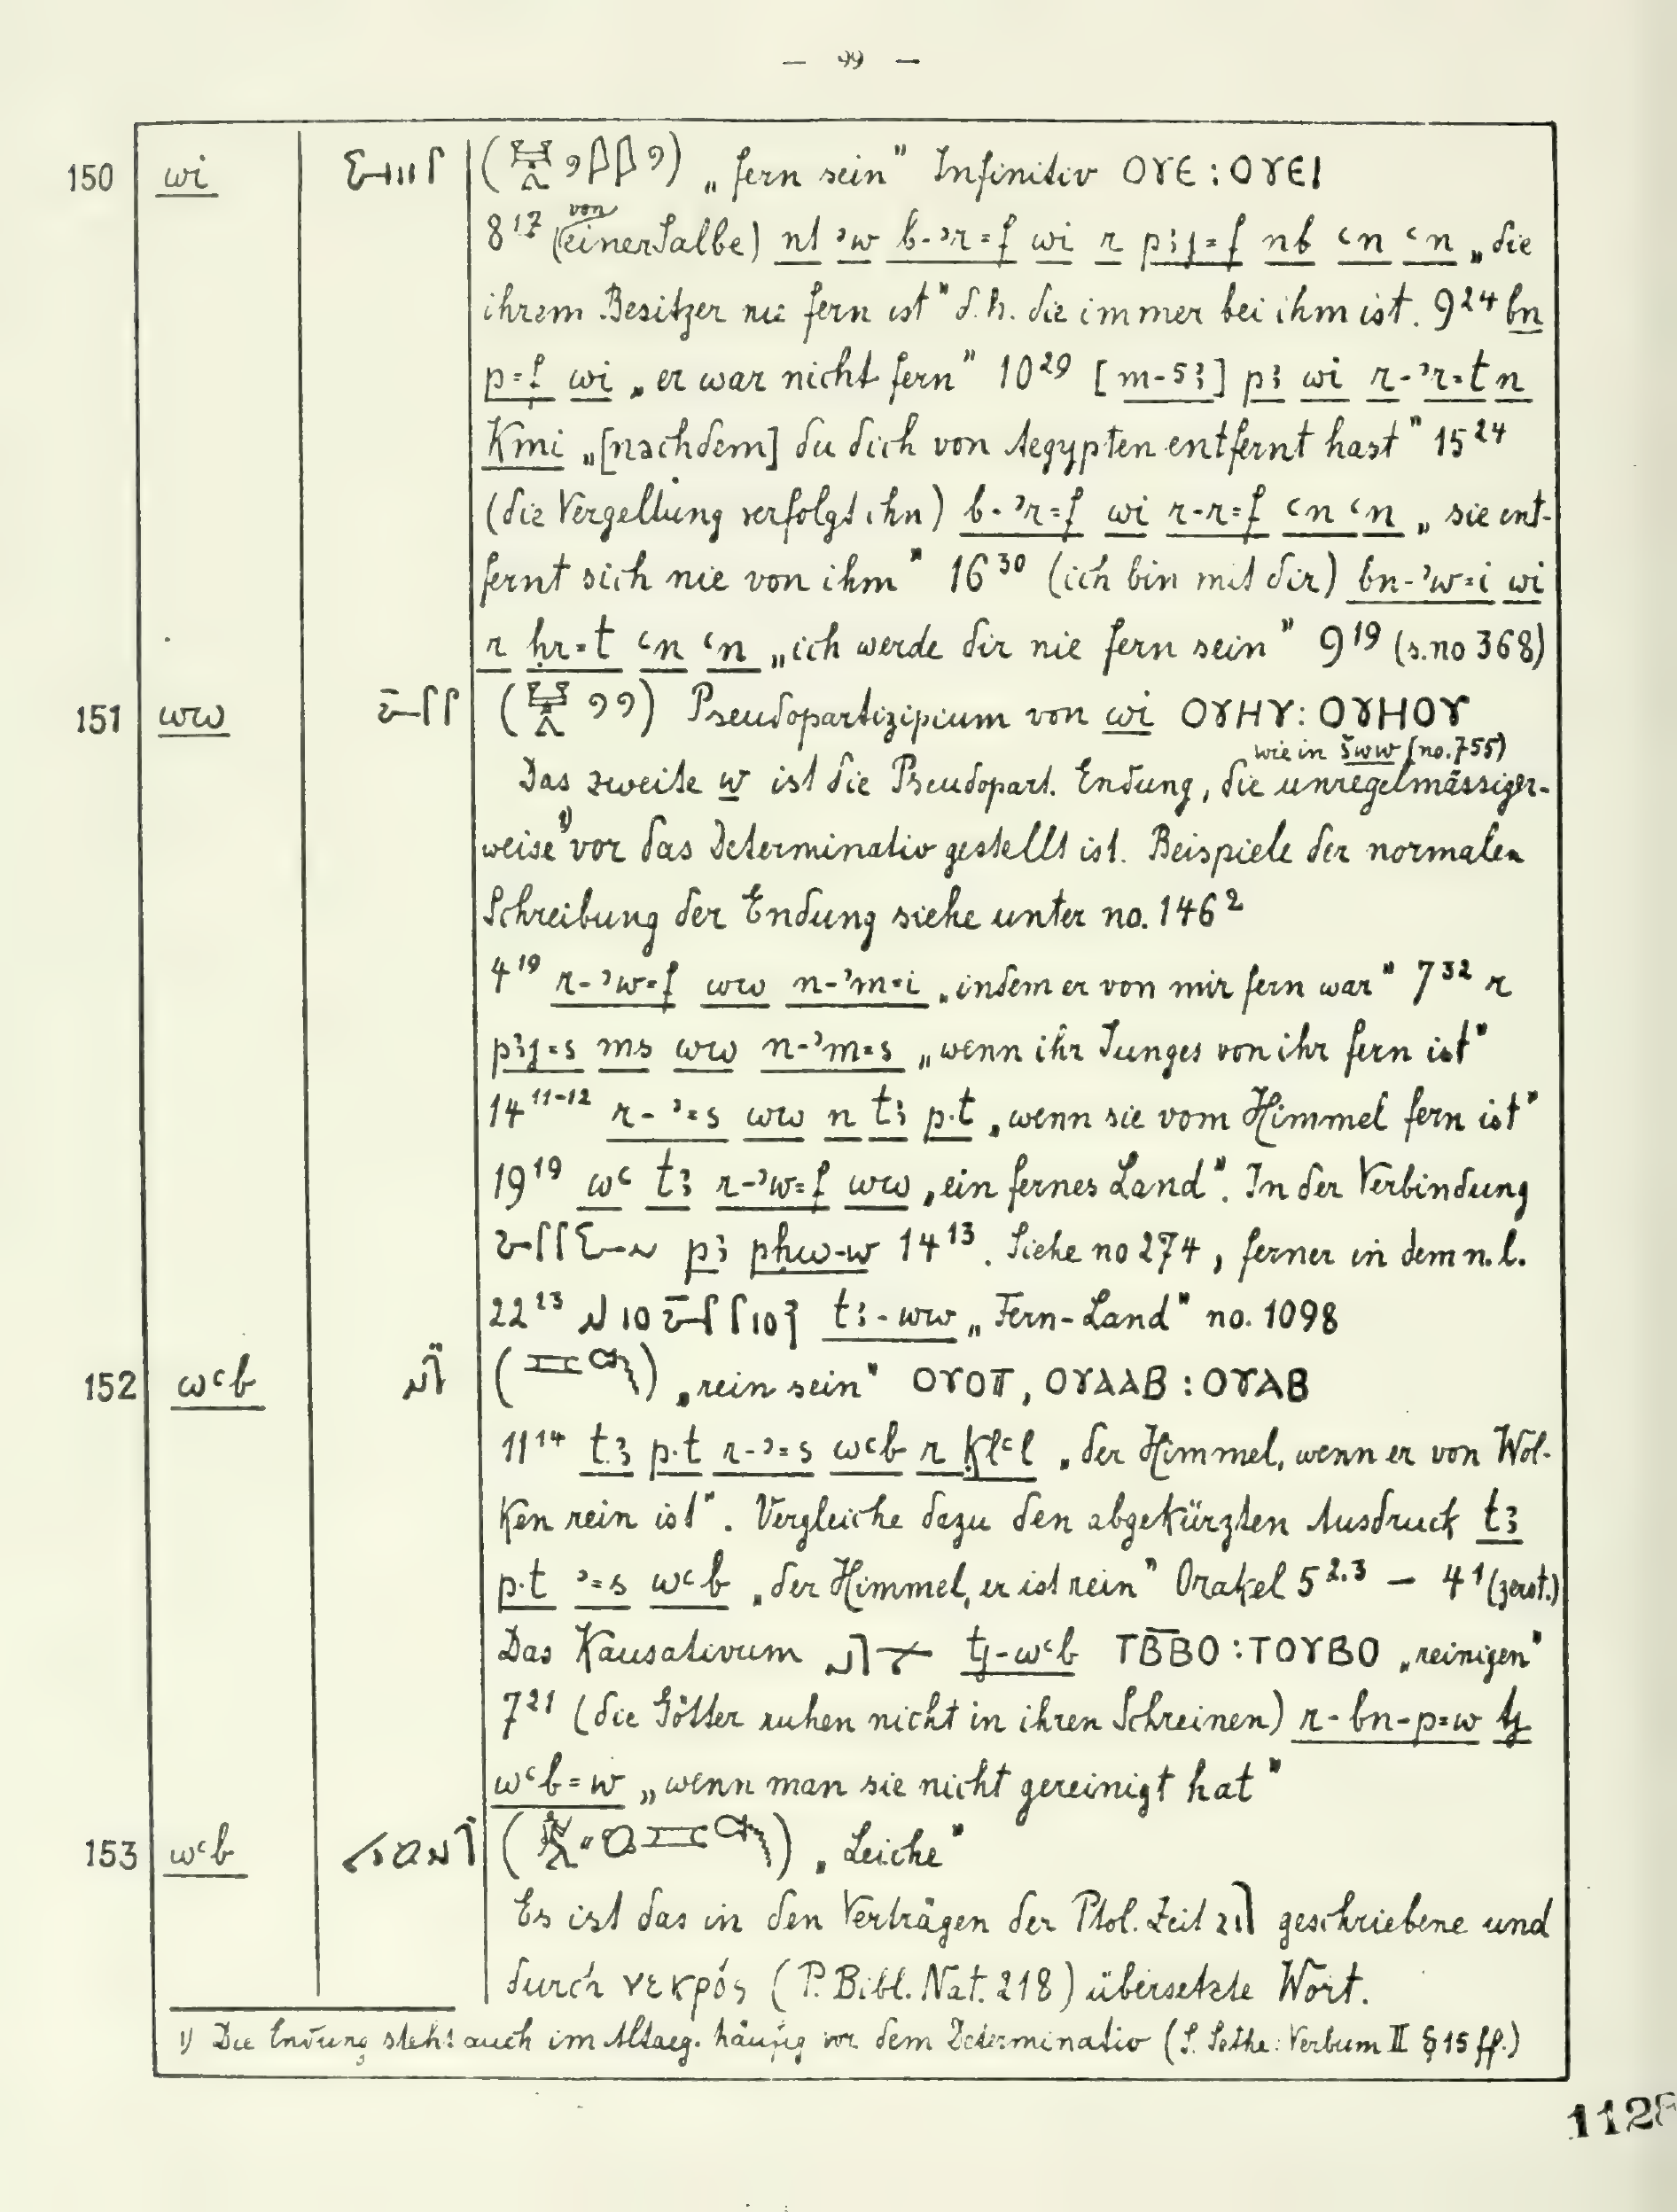 — 99 —
150 wi ( ) „fern sein" Infinitiv ΟΥΕ : ΟΥΕΙ
8¹⁷ (von einer Salbe) nt ꜣw b-ꜣr=f wi r pꜣj=f nb ꜥn ꜥn „die
ihrem Besitzer nie fern ist" d.h. die immer bei ihm ist. 9²⁴ bn
p=f wi „er war nicht fern" 10²⁹ [m-sꜣ] pꜣ wi r-ꜣr=t n
Kmi „[nachdem] du dich von Aegypten entfernt hast" 15²⁴
(die Vergeltung verfolgt ihn) b-ꜣr=f wi r-r=f ꜥn ꜥn „sie ent-
fernt sich nie von ihm" 16³⁰ (ich bin mit dir) bn-ꜣw=i wi
r ḥr=t ꜥn ꜥn „ich werde dir nie fern sein" 9¹⁹ (s. no 368)
151 ww ( ) Pseudopartizipium von wi ΟΥΗΥ : ΟΥΗΟΥ
Das zweite w ist die Pseudopart. Endung, die wie in šww (no. 755) unregelmässiger-
weise ¹⁾ vor das Determinativ gestellt ist. Beispiele der normalen
Schreibung der Endung siehe unter no. 146²
4¹⁹ r-ꜣw=f ww n-ꜣm=i „indem er von mir fern war" 7³² r
pꜣj=s ms ww n-ꜣm=s „wenn ihr Junges von ihr fern ist"
14¹¹⁻¹² r-ꜣ=s ww n tꜣ p.t „wenn sie vom Himmel fern ist"
19¹⁹ wꜥ tꜣ r-ꜣw=f ww „ein fernes Land". In der Verbindung
pꜣ pḥw-w 14¹³. Siehe no 274, ferner in dem n.l.
22²³ tꜣ-ww „Fern-Land" no. 1098
152 wꜥb ( ) „rein sein" ΟΥΟΠ, ΟΥΑΑΒ : ΟΥΑΒ
11¹⁴ tꜣ p.t r-ꜣ=s wꜥb r ḳlꜥl „der Himmel, wenn er von Wol-
ken rein ist". Vergleiche dazu den abgekürzten Ausdruck tꜣ
p.t ꜣ=s wꜥb „der Himmel, er ist rein" Orakel 5²·³ — 4¹ (zerst.)
Das Kausativum tj-wꜥb ΤΒ̄ΒΟ : ΤΟΥΒΟ „reinigen"
7²¹ (die Götter ruhen nicht in ihren Schreinen) r-bn-p=w tj
wꜥb=w „wenn man sie nicht gereinigt hat"
153 wꜥb ( ) „Leiche"
Es ist das in den Verträgen der Ptol. Zeit geschriebene und
durch νεκρός (P. Bibl. Nat. 218) übersetzte Wort.
1) Die Endung steht auch im Altaeg. häufig vor dem Determinativ (S. Sethe: Verbum II § 15 ff.)
1128